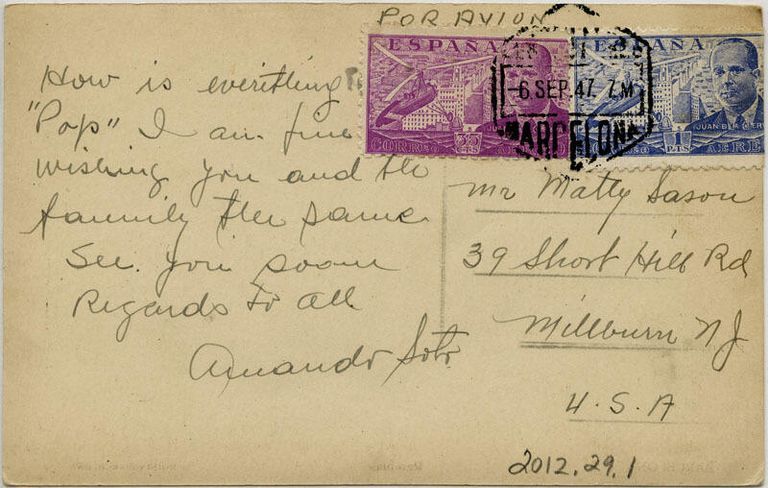 POR AVION
ESPAÑA
ESPAÑA
-6 SEP.47. 7M
BARCELONA
CORREO AEREO
1 PTS
JUAN DE LA CIERVA
CORREO AEREO
How is everithing
"Pop" I am fine
wishing you and the
familly the same
See you soon
Regards to all
Amando Soto
Mr Matty Sason
39 Short Hill Rd
Millburn NJ
U.S.A
2012.29.1